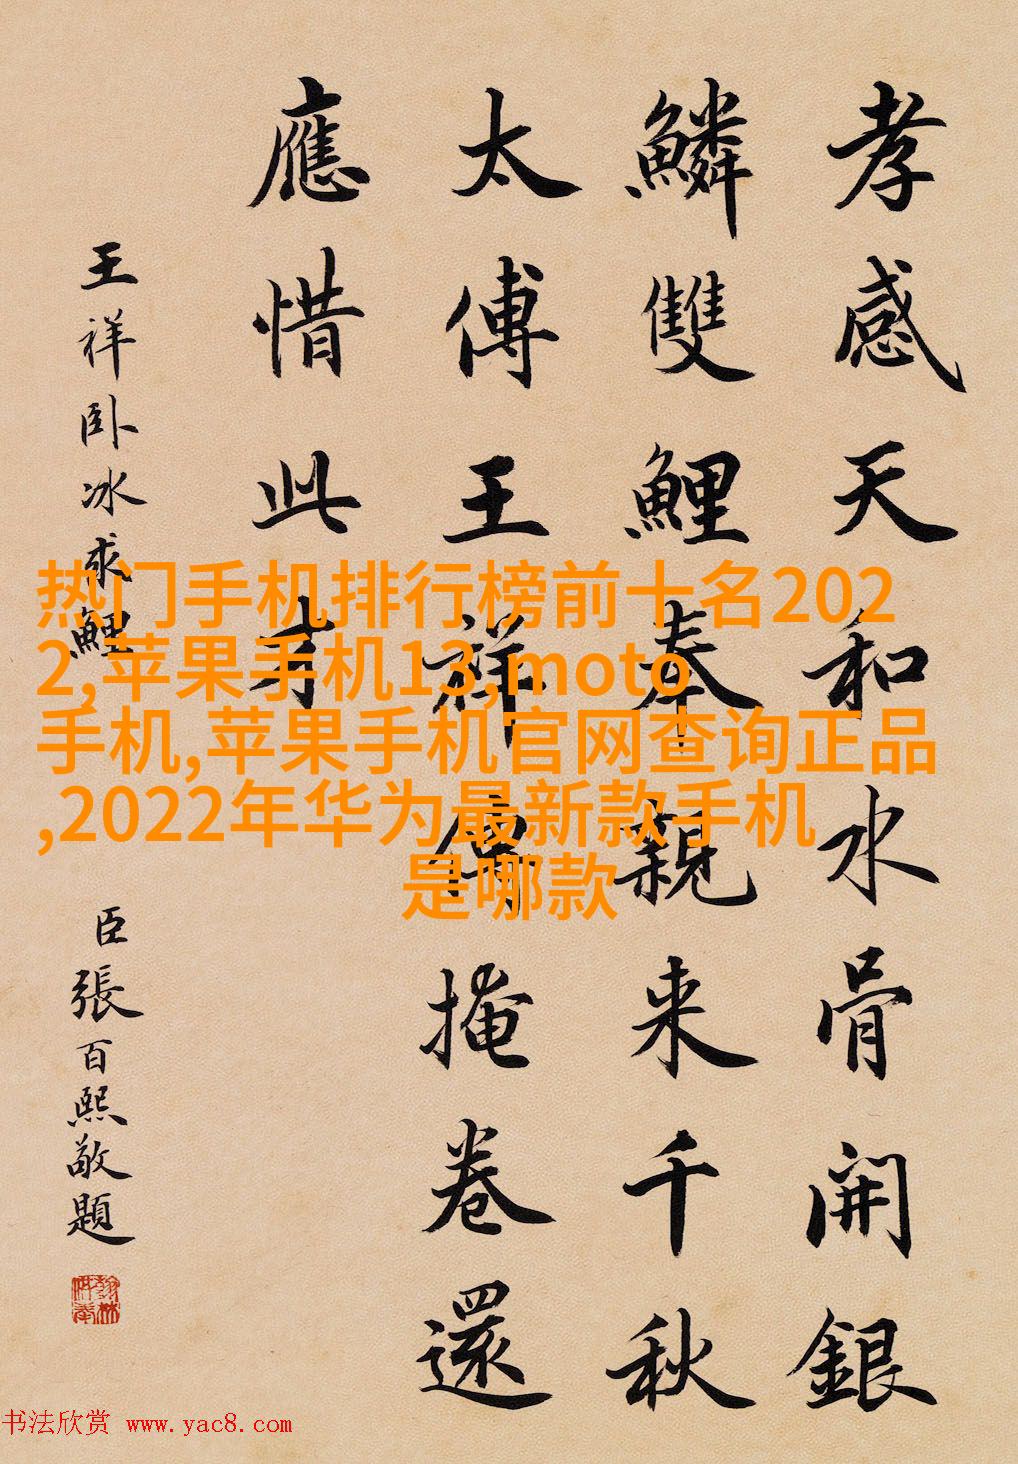 孝感天和水骨開銀
鱗雙鯉奉親来千秋
太傅王祥傳掩卷還
應惜此才
王祥卧冰求鯉
臣張百熙敬題
热门手机排行榜前十名202
2,苹果手机13,moto
手机,苹果手机官网查询正品
,2022年华为最新款手机
是哪款
书法欣赏 www.yac8.com